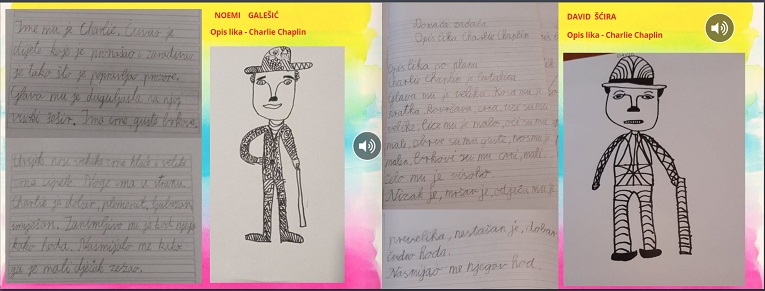 Ime mu je Charlie. Čuvao je
dijete koje je pronašao i zarađivao
je tako što je popravljao prozore.
Glava mu je duguljasta na njoj
visoki šešir. Ima crne, guste brkove.
nosi velike crne hlače i velike
crne cipele. Noge ima u stranu.
Charlie je dobar, plemenit, ljubazan,
smiješan. Zanimljiv mi je bio njegov
kako hoda. Nasmijalo me kako
ga je mali dječak zezao.
NOEMI GALEŠIĆ
Opis lika - Charlie Chaplin
Domaća zadaća
Opis lika Charlie Chaplin
Opis lika po planu
Charlie Chaplin je skitnica.
Glava mu je velika. Kosa mu je
kratka kovrčava, crna, uši su mu
velike. Lice mu je malo, oči su mu
mali, obrve su mu guste, nos mu je
malen, brkovi su mu crni, mali.
čelo mu je visoko.
Nizak je, mršav je, odjeća mu je
prevelika, nestašan je, dobar
čudno hoda.
Nasmijao me njegov hod.
DAVID ŠĆIRA
Opis lika - Charlie Chaplin